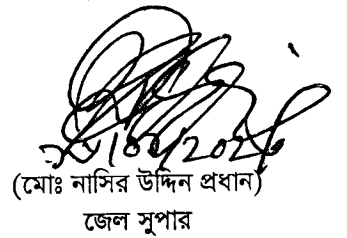 (মোঃ নাসির উদ্দিন প্রধান)
জেল সুপার